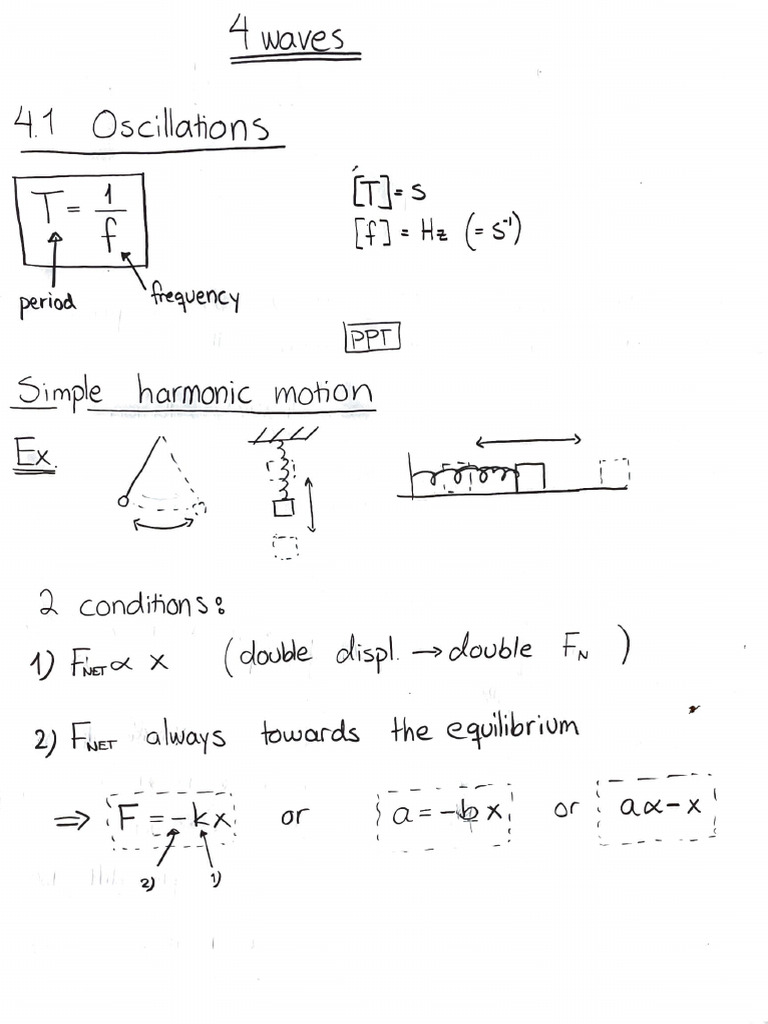 4 waves
4.1 Oscillations
T = 1/f
[T] = s
[f] = Hz (= s⁻¹)
period
frequency
PPT
Simple harmonic motion
Ex.
2 conditions:
1) F_NET ∝ x (double displ. → double F_N )
2) F_NET always towards the equilibrium
⇒ F = -kx or a = -bx or a ∝ -x
2) 1)